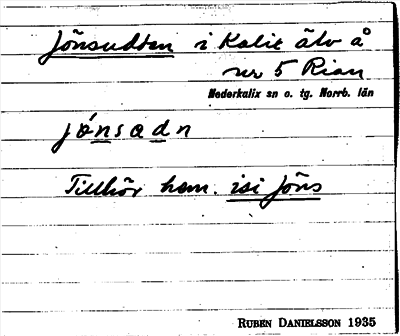 Jönsudden i Kalix älv å
nr 5 Rian
Nederkalix sn o. tg. Norrb. län
jö́nsadn
Tillhör hem. isi Jöns
RUBEN DANIELSSON 1935